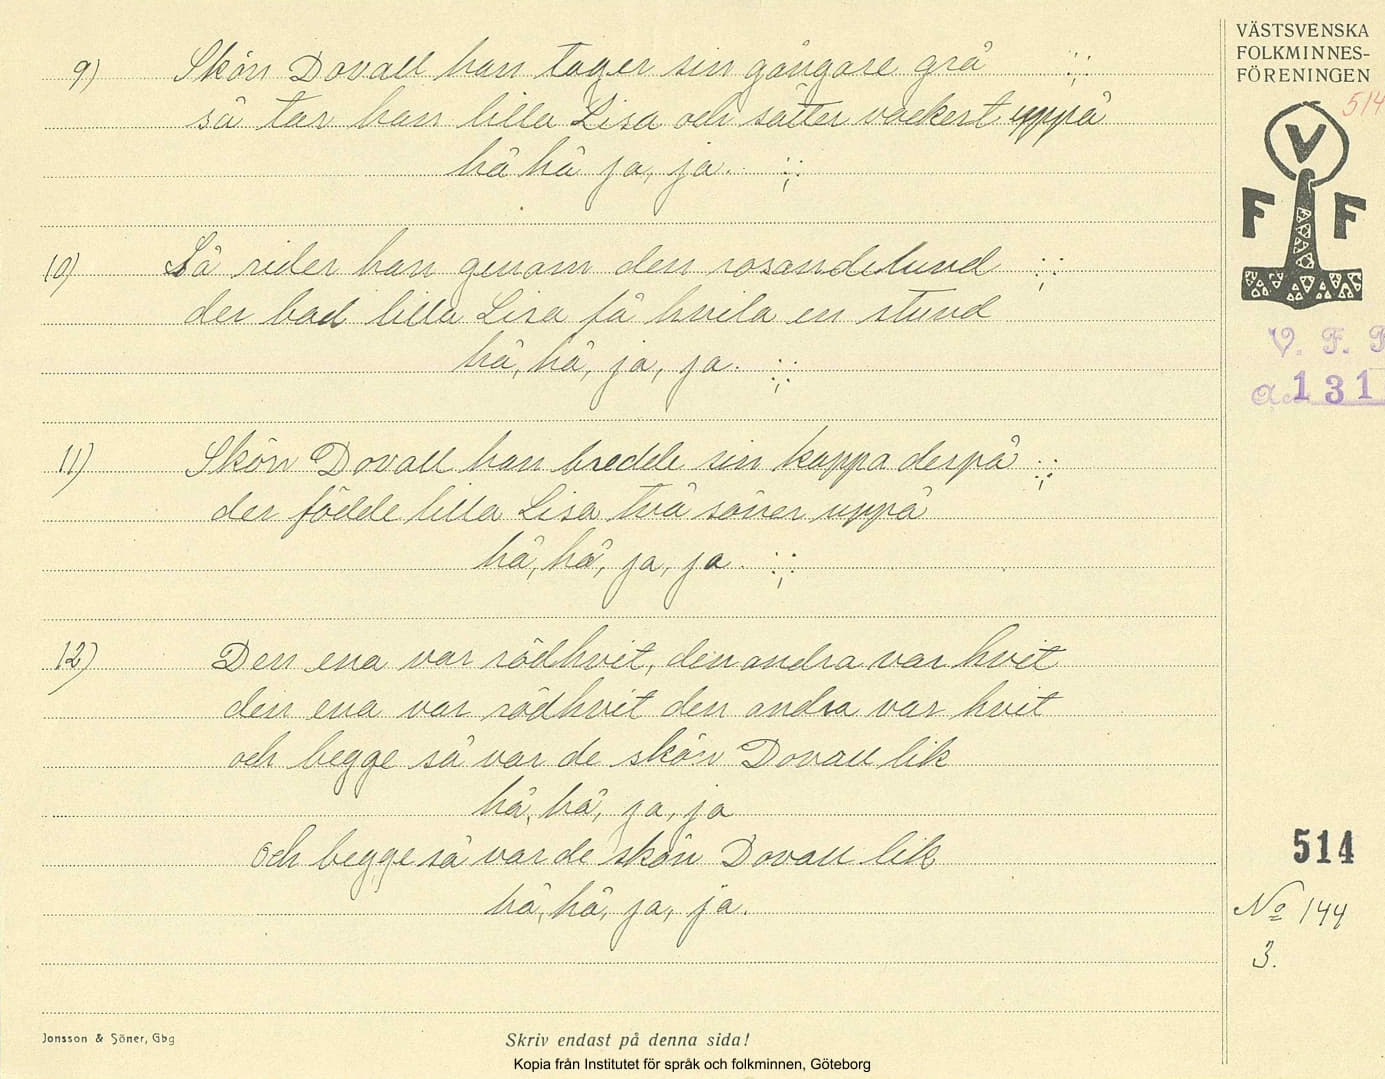 VÄSTSVENSKA
FOLKMINNES-
FÖRENINGEN
514
V
F F
V. F. F
Acc. 131
9) Skön Dovall han tager sin gångare grå :;:
så tar han lilla Lisa och sätter vackert uppå
hå hå ja, ja. :;:
10) Så rider han genom den rosandelund :;:
der bad lilla Lisa få hvila en stund
hå, hå, ja, ja. :;:
11) Skön Dovall han bredde sin kappa derpå :;:
der födde lilla Lisa två söner uppå
hå, hå, ja, ja. :;:
12) Den ena var rödhvit, den andra var hvit
den ena var rödhvit den andra var hvit
och begge så var de skön Dovall lik
hå, hå, ja, ja
och begge så var de skön Dovall lik
hå, hå, ja, ja.
514
No 144
3.
Jonsson & Söner, Gbg
Skriv endast på denna sida!
Kopia från Institutet för språk och folkminnen, Göteborg